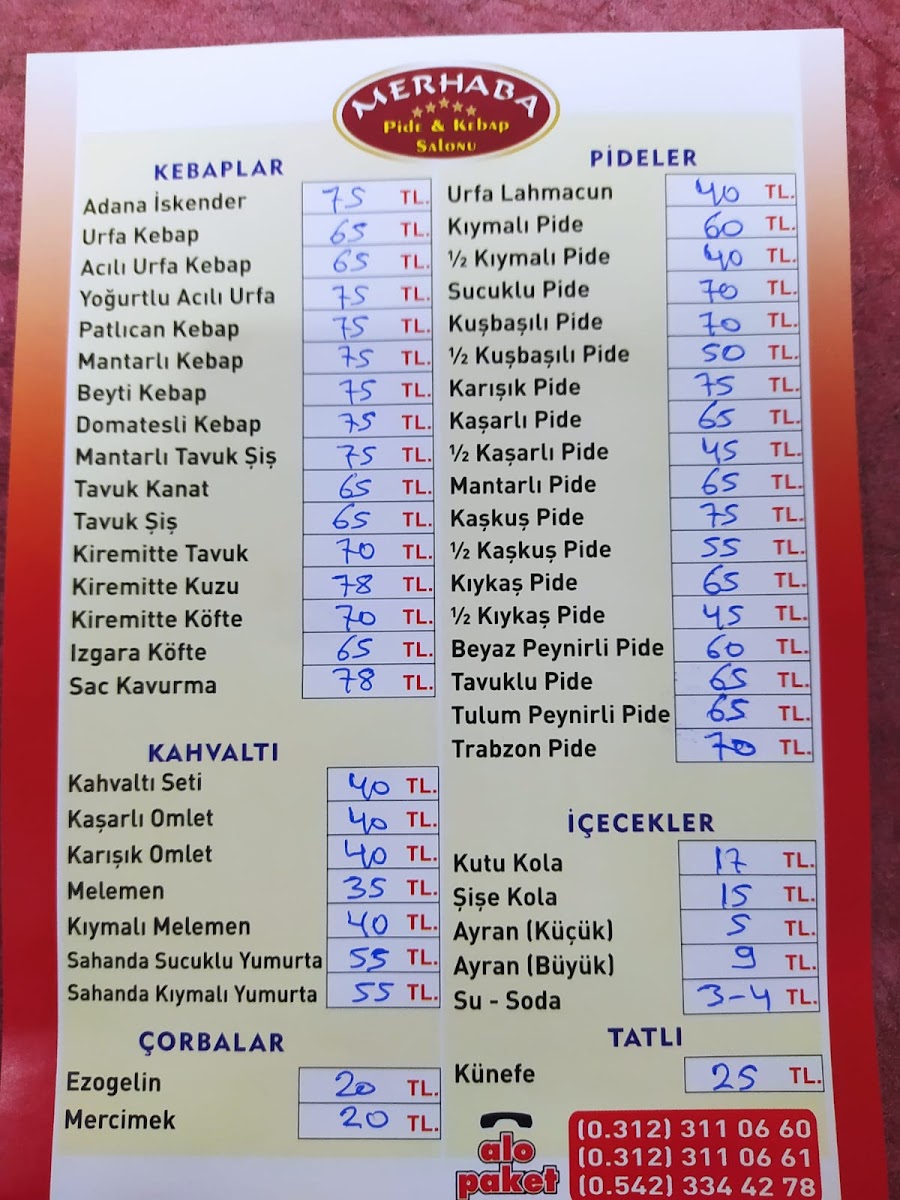 MERHABA
Pide & Kebap
Salonu
KEBAPLAR
Adana İskender 75 TL.
Urfa Kebap 65 TL.
Acılı Urfa Kebap 65 TL.
Yoğurtlu Acılı Urfa 75 TL.
Patlıcan Kebap 75 TL.
Mantarlı Kebap 75 TL.
Beyti Kebap 75 TL.
Domatesli Kebap 75 TL.
Mantarlı Tavuk Şiş 75 TL.
Tavuk Kanat 65 TL.
Tavuk Şiş 65 TL.
Kiremitte Tavuk 70 TL.
Kiremitte Kuzu 78 TL.
Kiremitte Köfte 70 TL.
Izgara Köfte 65 TL.
Sac Kavurma 78 TL.
KAHVALTI
Kahvaltı Seti 40 TL.
Kaşarlı Omlet 40 TL.
Karışık Omlet 40 TL.
Melemen 35 TL.
Kıymalı Melemen 40 TL.
Sahanda Sucuklu Yumurta 55 TL.
Sahanda Kıymalı Yumurta 55 TL.
ÇORBALAR
Ezogelin 20 TL.
Mercimek 20 TL.
PİDELER
Urfa Lahmacun 40 TL.
Kıymalı Pide 60 TL.
½ Kıymalı Pide 40 TL.
Sucuklu Pide 70 TL.
Kuşbaşılı Pide 70 TL.
½ Kuşbaşılı Pide 50 TL.
Karışık Pide 75 TL.
Kaşarlı Pide 65 TL.
½ Kaşarlı Pide 45 TL.
Mantarlı Pide 65 TL.
Kaşkuş Pide 75 TL.
½ Kaşkuş Pide 55 TL.
Kıykaş Pide 65 TL.
½ Kıykaş Pide 45 TL.
Beyaz Peynirli Pide 60 TL.
Tavuklu Pide 65 TL.
Tulum Peynirli Pide 65 TL.
Trabzon Pide 70 TL.
İÇECEKLER
Kutu Kola 17 TL.
Şişe Kola 15 TL.
Ayran (Küçük) 5 TL.
Ayran (Büyük) 9 TL.
Su - Soda 3-4 TL.
TATLI
Künefe 25 TL.
alo
paket
(0.312) 311 06 60
(0.312) 311 06 61
(0.542) 334 42 78